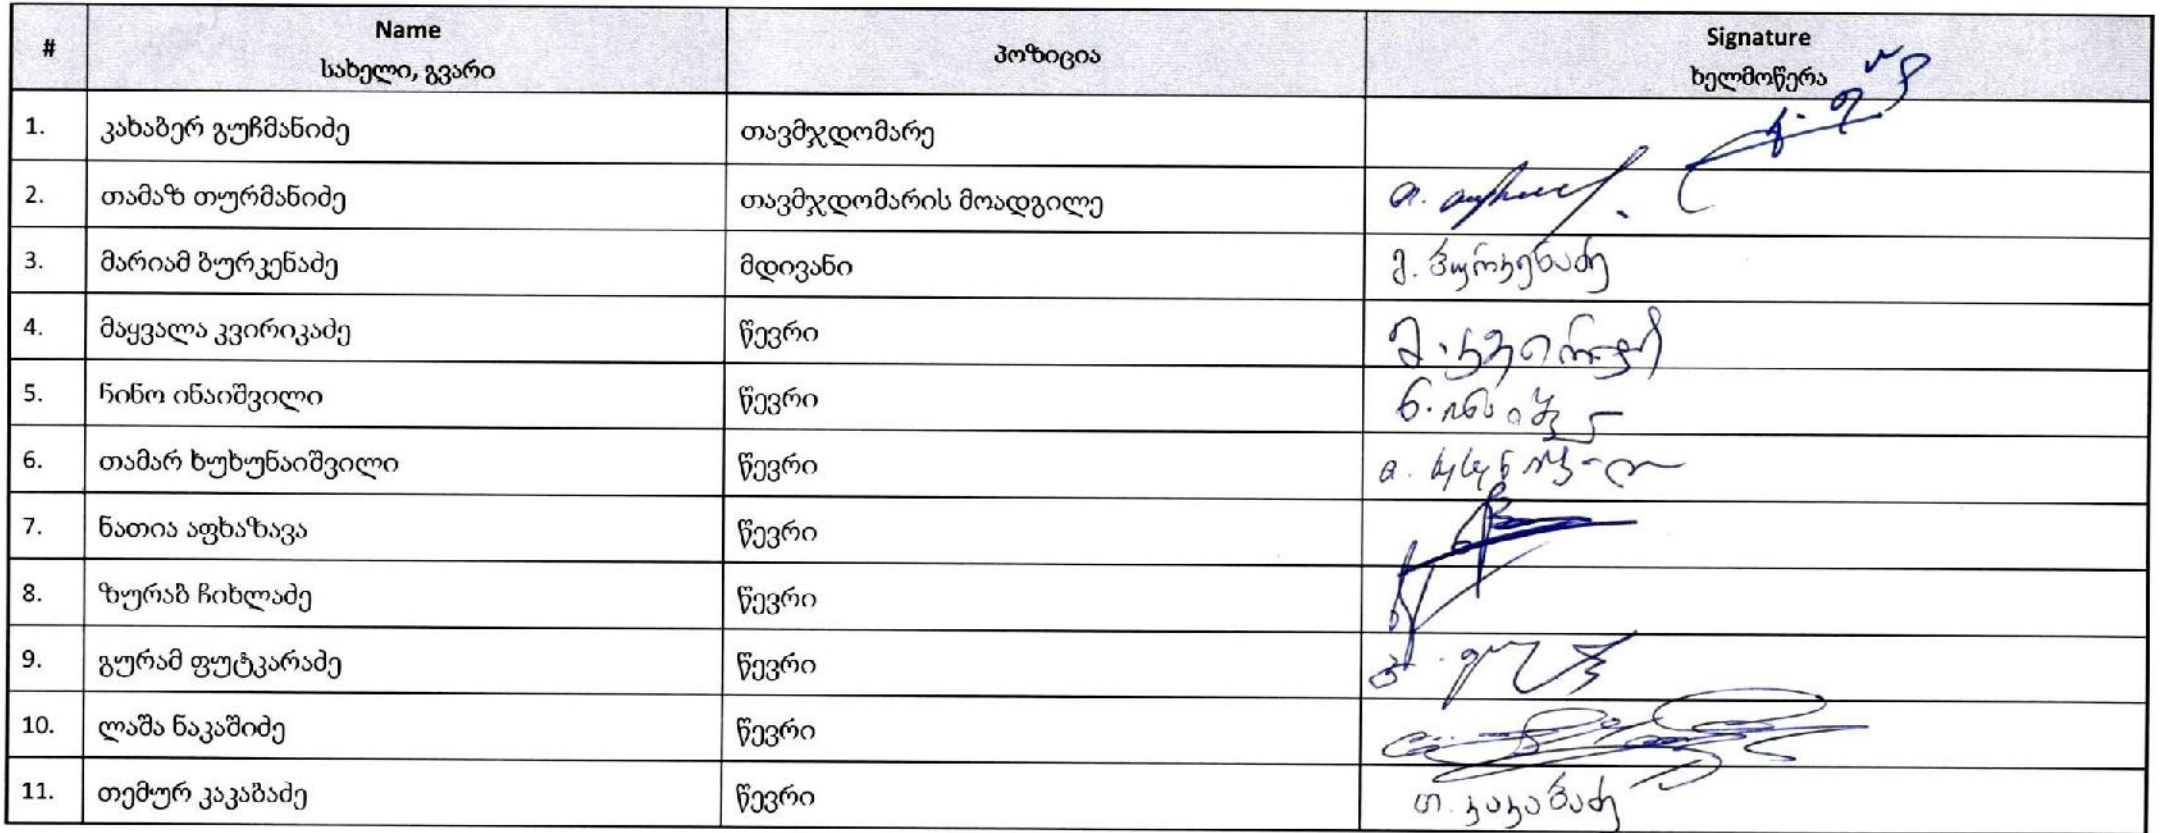 #
Name
სახელი, გვარი
პოზიცია
Signature
ხელმოწერა
1. კახაბერ გუჩმანიძე თავმჯდომარე
2. თამაზ თურმანიძე თავმჯდომარის მოადგილე
3. მარიამ ბურკენაძე მდივანი მ. ბურკენაძე
4. მაყვალა კვირიკაძე წევრი
5. ჩინო ინაიშვილი წევრი
6. თამარ ხუხუნაიშვილი წევრი
7. ნათია აფხაზავა წევრი
8. ზურაბ ჩიხლაძე წევრი
9. გურამ ფუტკარაძე წევრი
10. ლაშა ნაკაშიძე წევრი
11. თემურ კაკაბაძე წევრი თ. კაკაბაძე